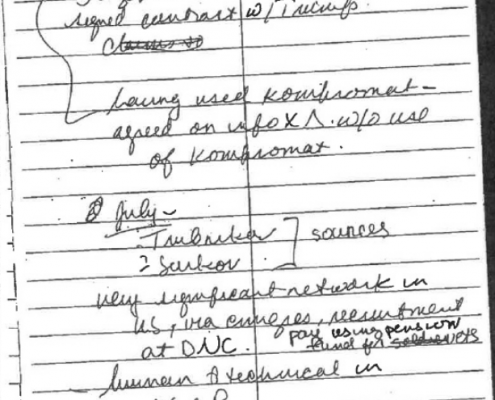 signed contract w/ Trump.
having used Kompromat -
agreed on info XΔ. w/o use
of Kompromat.
July -
Trubnikov
? Surkov ] sources
very significant network in
US, via emigres, recruitment
at DNC. pay using pension
fund for vets
- human & technical in